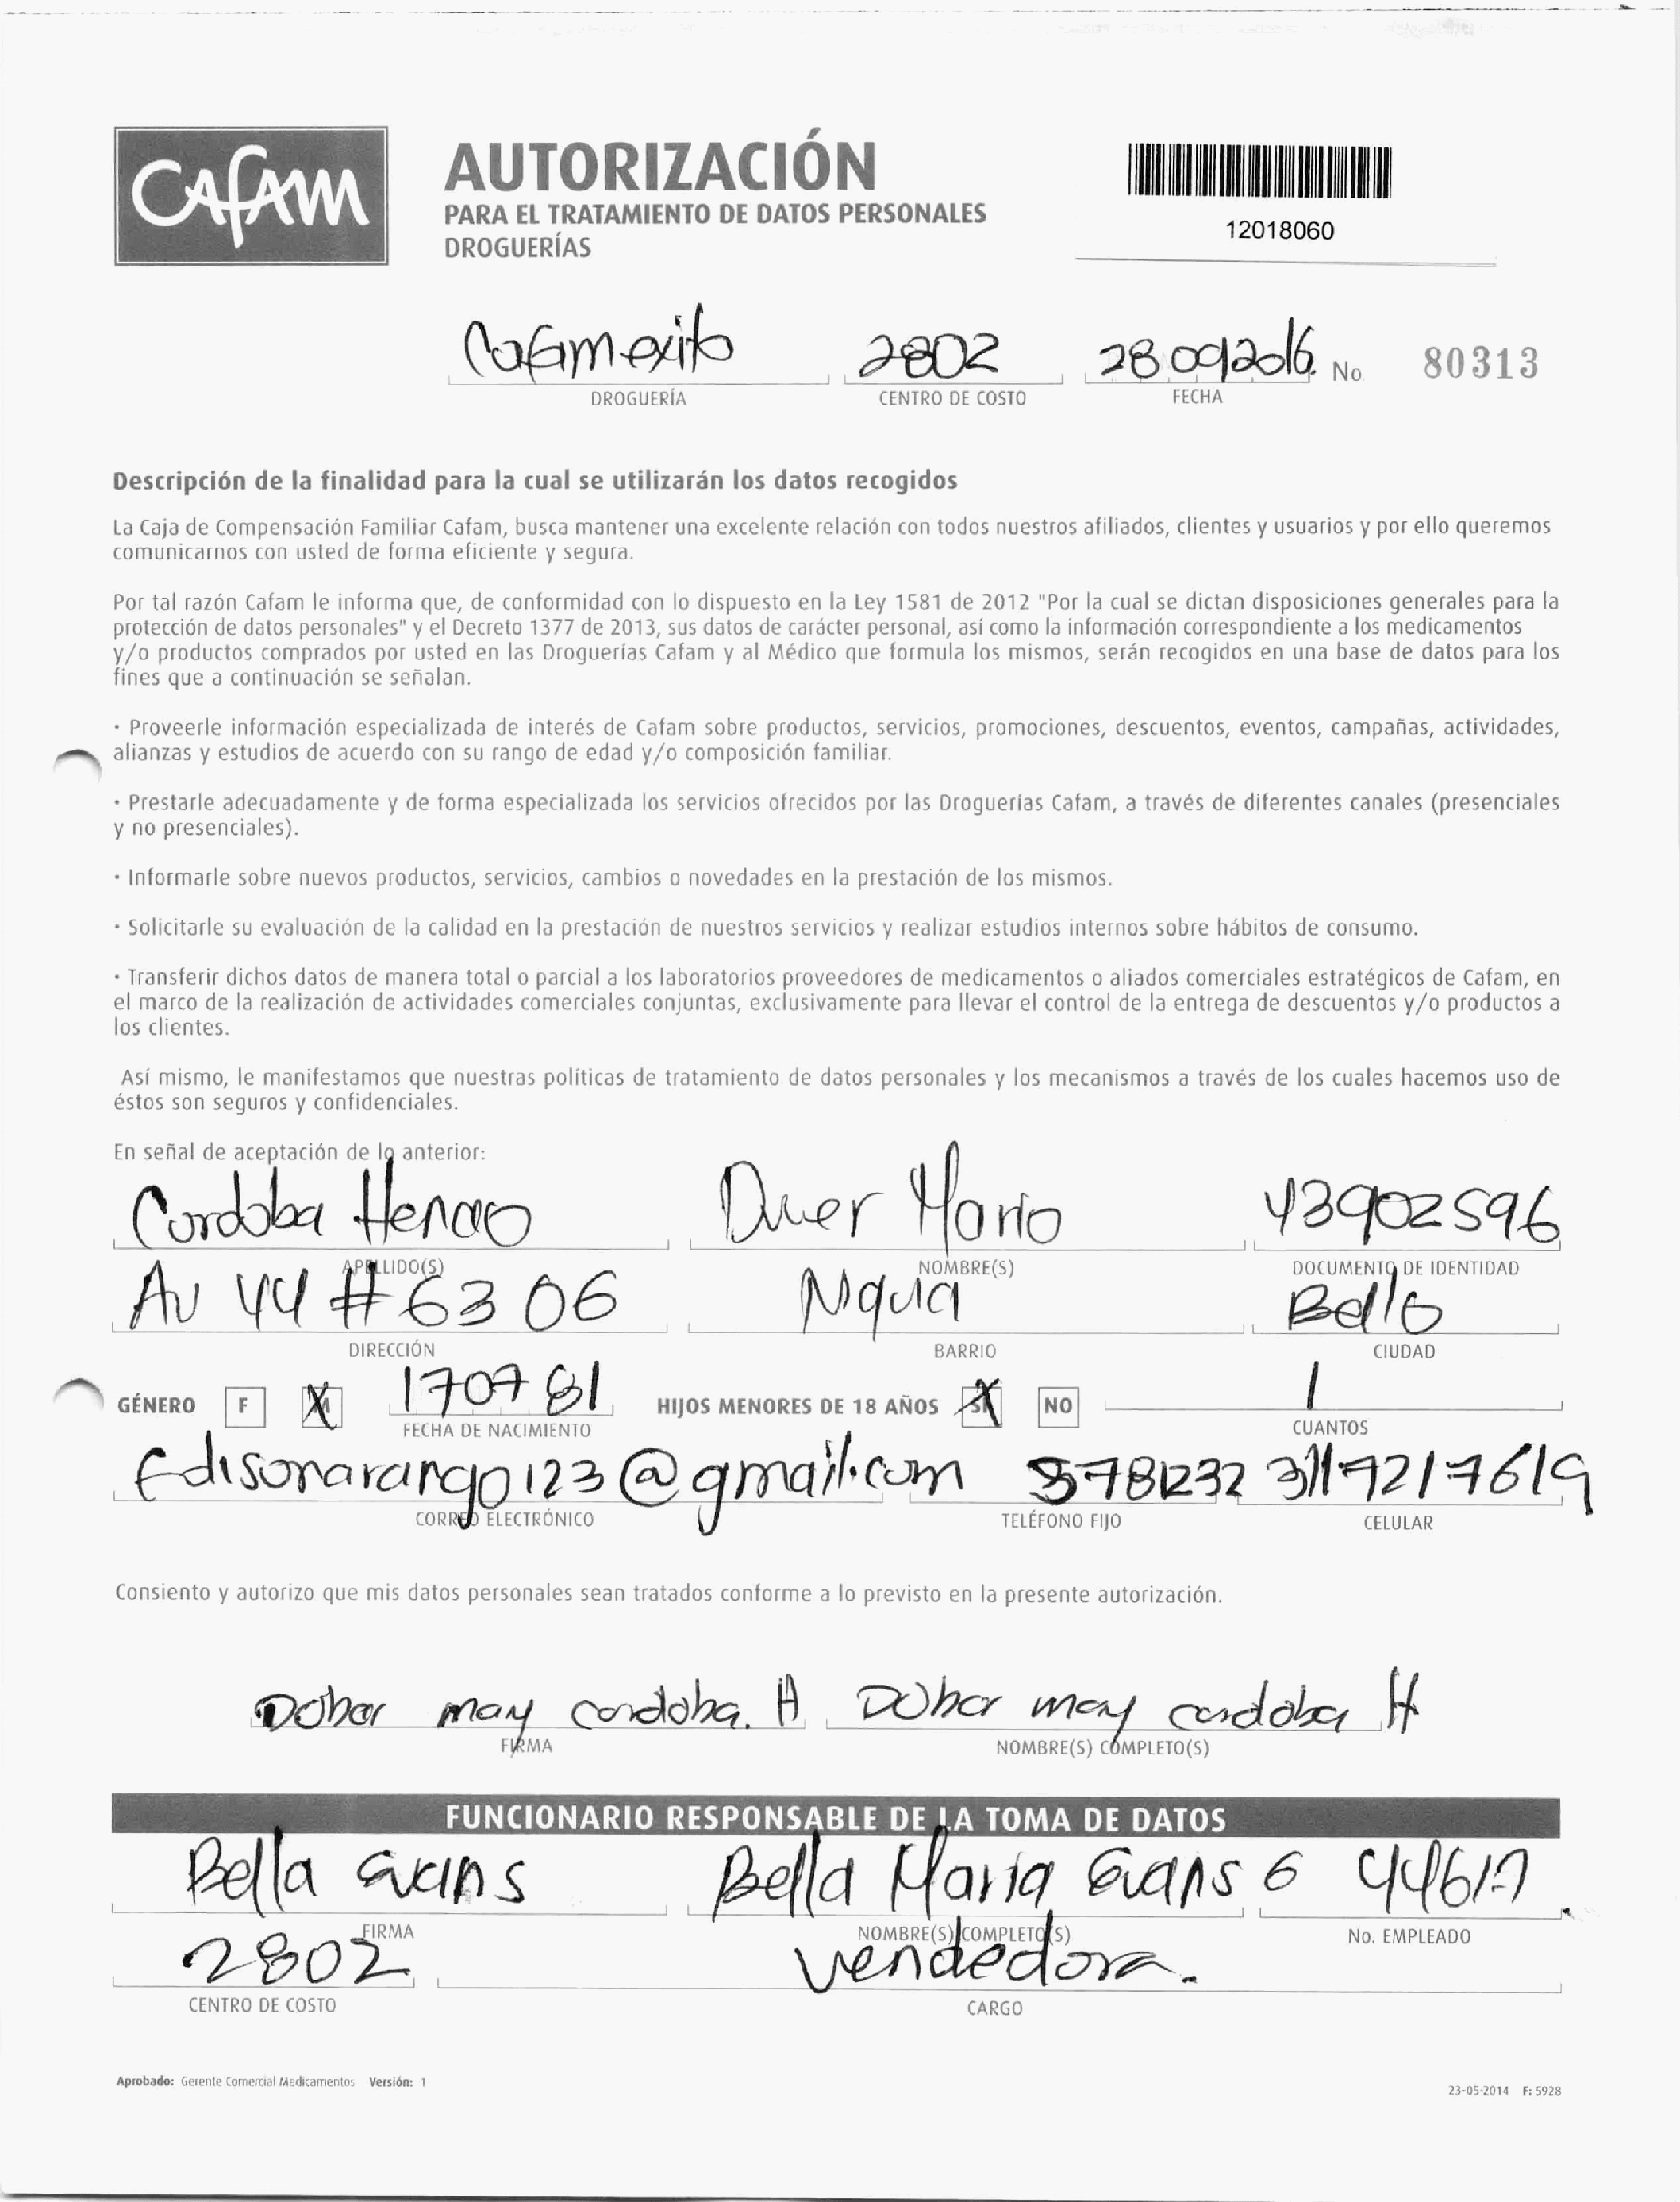 CAFAM
AUTORIZACIÓN
PARA EL TRATAMIENTO DE DATOS PERSONALES
DROGUERÍAS
12018060
Cafam exito 2802 28 09 2016. No 80313
DROGUERÍA CENTRO DE COSTO FECHA
Descripción de la finalidad para la cual se utilizarán los datos recogidos
La Caja de Compensación Familiar Cafam, busca mantener una excelente relación con todos nuestros afiliados, clientes y usuarios y por ello queremos
comunicarnos con usted de forma eficiente y segura.
Por tal razón Cafam le informa que, de conformidad con lo dispuesto en la Ley 1581 de 2012 "Por la cual se dictan disposiciones generales para la
protección de datos personales" y el Decreto 1377 de 2013, sus datos de carácter personal, así como la información correspondiente a los medicamentos
y/o productos comprados por usted en las Droguerías Cafam y al Médico que formula los mismos, serán recogidos en una base de datos para los
fines que a continuación se señalan.
· Proveerle información especializada de interés de Cafam sobre productos, servicios, promociones, descuentos, eventos, campañas, actividades,
alianzas y estudios de acuerdo con su rango de edad y/o composición familiar.
· Prestarle adecuadamente y de forma especializada los servicios ofrecidos por las Droguerías Cafam, a través de diferentes canales (presenciales
y no presenciales).
· Informarle sobre nuevos productos, servicios, cambios o novedades en la prestación de los mismos.
· Solicitarle su evaluación de la calidad en la prestación de nuestros servicios y realizar estudios internos sobre hábitos de consumo.
· Transferir dichos datos de manera total o parcial a los laboratorios proveedores de medicamentos o aliados comerciales estratégicos de Cafam, en
el marco de la realización de actividades comerciales conjuntas, exclusivamente para llevar el control de la entrega de descuentos y/o productos a
los clientes.
Así mismo, le manifestamos que nuestras políticas de tratamiento de datos personales y los mecanismos a través de los cuales hacemos uso de
éstos son seguros y confidenciales.
En señal de aceptación de lo anterior:
Cordoba Henao 43902596
APELLIDO(S) NOMBRE(S) DOCUMENTO DE IDENTIDAD
Av 44 # 63 06 Niquia Bello
DIRECCIÓN BARRIO CIUDAD
GÉNERO F M 170781 HIJOS MENORES DE 18 AÑOS SI NO 1
FECHA DE NACIMIENTO CUANTOS
Edisonarango123@gmail.com 3117217619
CORREO ELECTRÓNICO TELÉFONO FIJO CELULAR
Consiento y autorizo que mis datos personales sean tratados conforme a lo previsto en la presente autorización.
may cordoba. H may cordoba H
FIRMA NOMBRE(S) COMPLETO(S)
FUNCIONARIO RESPONSABLE DE LA TOMA DE DATOS
Bella Evans Bella Maria Evans G
FIRMA NOMBRE(S) COMPLETO(S) No. EMPLEADO
2802 vendedora.
CENTRO DE COSTO CARGO
Aprobado: Gerente Comercial Medicamentos Versión: 1
23-05-2014 F: 5928